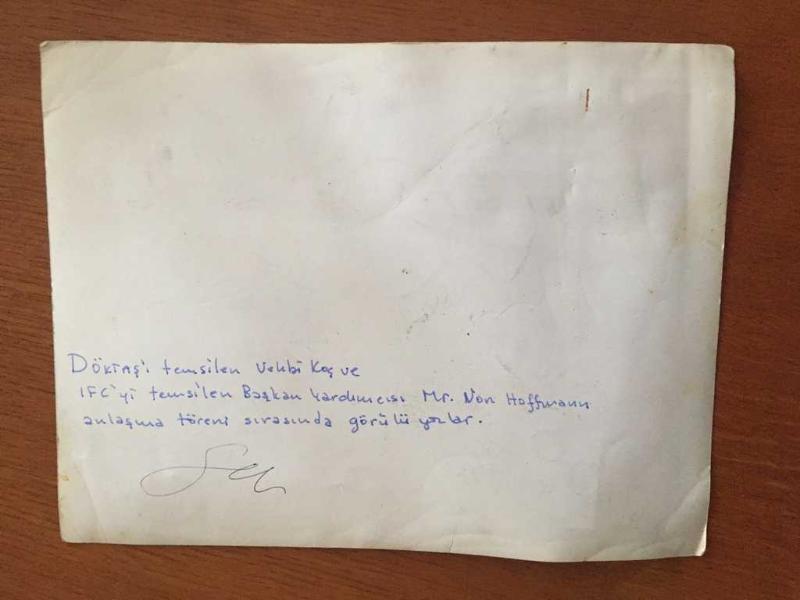 DÖKTAŞ'ı temsilen Vehbi Koç ve
IFC'yi temsilen Başkan Yardımcısı Mr. Von Hoffmann
anlaşma töreni sırasında görülüyorlar.